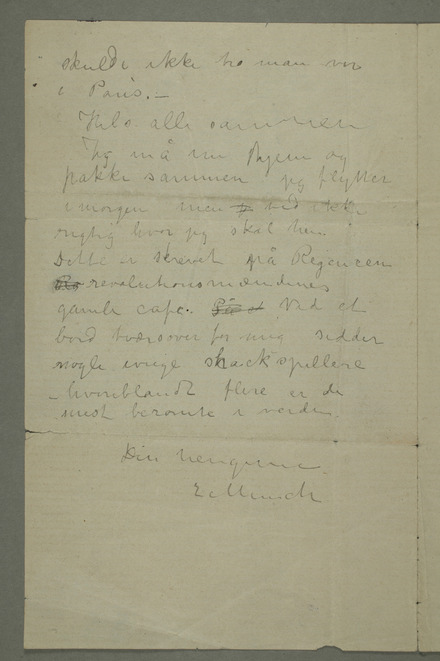 skulde ikke tro man var
i Paris.–
Hils alle sammen
Jeg må nu hjem og
pakke sammen jeg flytter
imorgen men ved ikke
rigtig hvor jeg skal hen.
Dette er skrevet på Regencen
revolutionsmændenes
gamle cafe. Ved et
bord tværsover for mig sidder
nogle ivrige skackspillere
– hvoriblandt flere er de
mest berømte i verden.
Din hengivne
E Munch